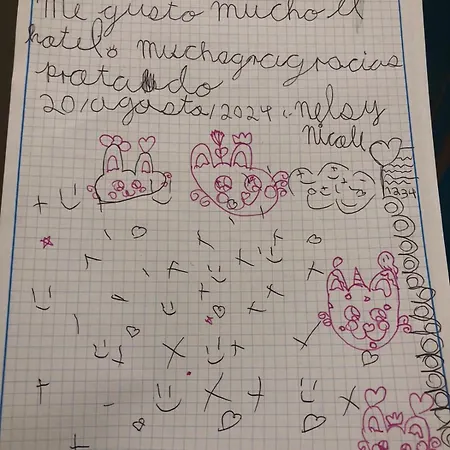 Me gusto mucho el
hotel. muchagragracias
20/agosto/2024 Nelsy
Nicoll
1234